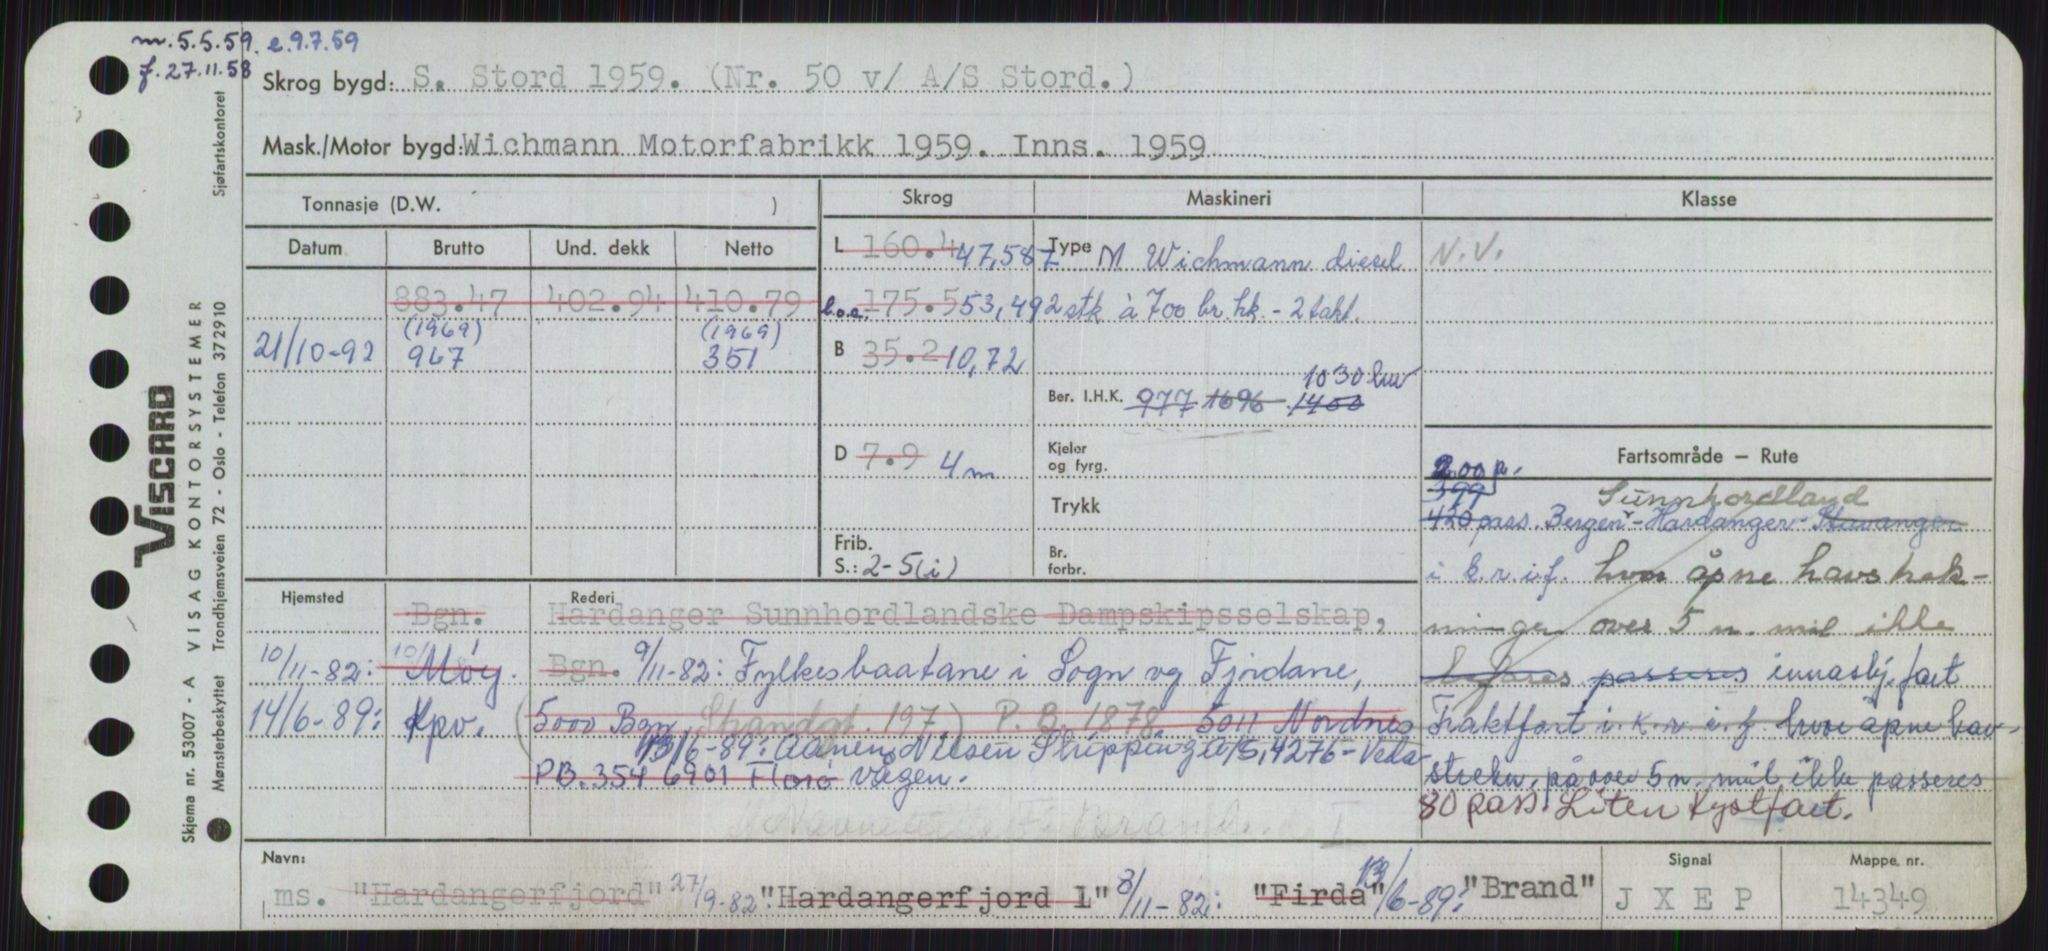 m. 5.5.59. e.9.7.59
f. 27.11.58
Skrog bygd: S. Stord 1959. (Nr. 50 v/ A/S Stord.)
Mask./Motor bygd: Wichmann Motorfabrikk 1959. Inns. 1959
Tonnasje (D.W. ) Skrog Maskineri Klasse
Datum Brutto Und. dekk Netto
L 160.4 47,587 Type M Wichmann diesel N.V.
883.47 402.94 410.79 b.o.a. 175.5 53,49 2 stk à 700 br. hk. - 2 takt.
(1969) (1969)
21/10-92 967 351 B 35.2 10,72
1030 kw
Ber. I.H.K. 977 1696 1400
D 7.9 4 m Kjeler og fyrg.
Trykk
Frib. Br. forbr.
S.: 2-5(i)
Fartsområde — Rute
200 p.
399 Sunnhordland
420 pass. Bergen - Hardanger - Stavanger
i k.r.i.f. hvor åpne havstrek-
ninger over 5 n. mil ikke
passeres innaskj. fart
Fraktfart i.k.r.i.f. hvor åpne hav-
streku. på over 5 n. mil ikke passeres
80 pass. Liten Kystfart.
Hjemsted Rederi
Bgn. Hardanger Sunnhordlandske Dampskipsselskap,
10/11-82: Måy. Bgn. 9/11-82: Fylkesbaatane i Sogn og Fjordane,
14/6-89: Kpv. (5000 Bgn Strandgt. 197) P.B. 1878 5011 Nordnes
13/6-89: Aanen Nilsen Shipping A/S, 4276 - Veda-
PB. 354 6901 Florø vågen.
Navn: Signal Mappe. nr.
ms. "Hardangerfjord" 27/9-82: "Hardangerfjord I" 8/11-82: "Firda" 13/6-89: "Brand" J X E P 14349
VISCARD
VISAG KONTORSYSTEMER
Skjema nr. 53007 - A
Mønsterbeskyttet Trondhjemsveien 72 - Oslo - Telefon 372910
Sjøfartskontoret